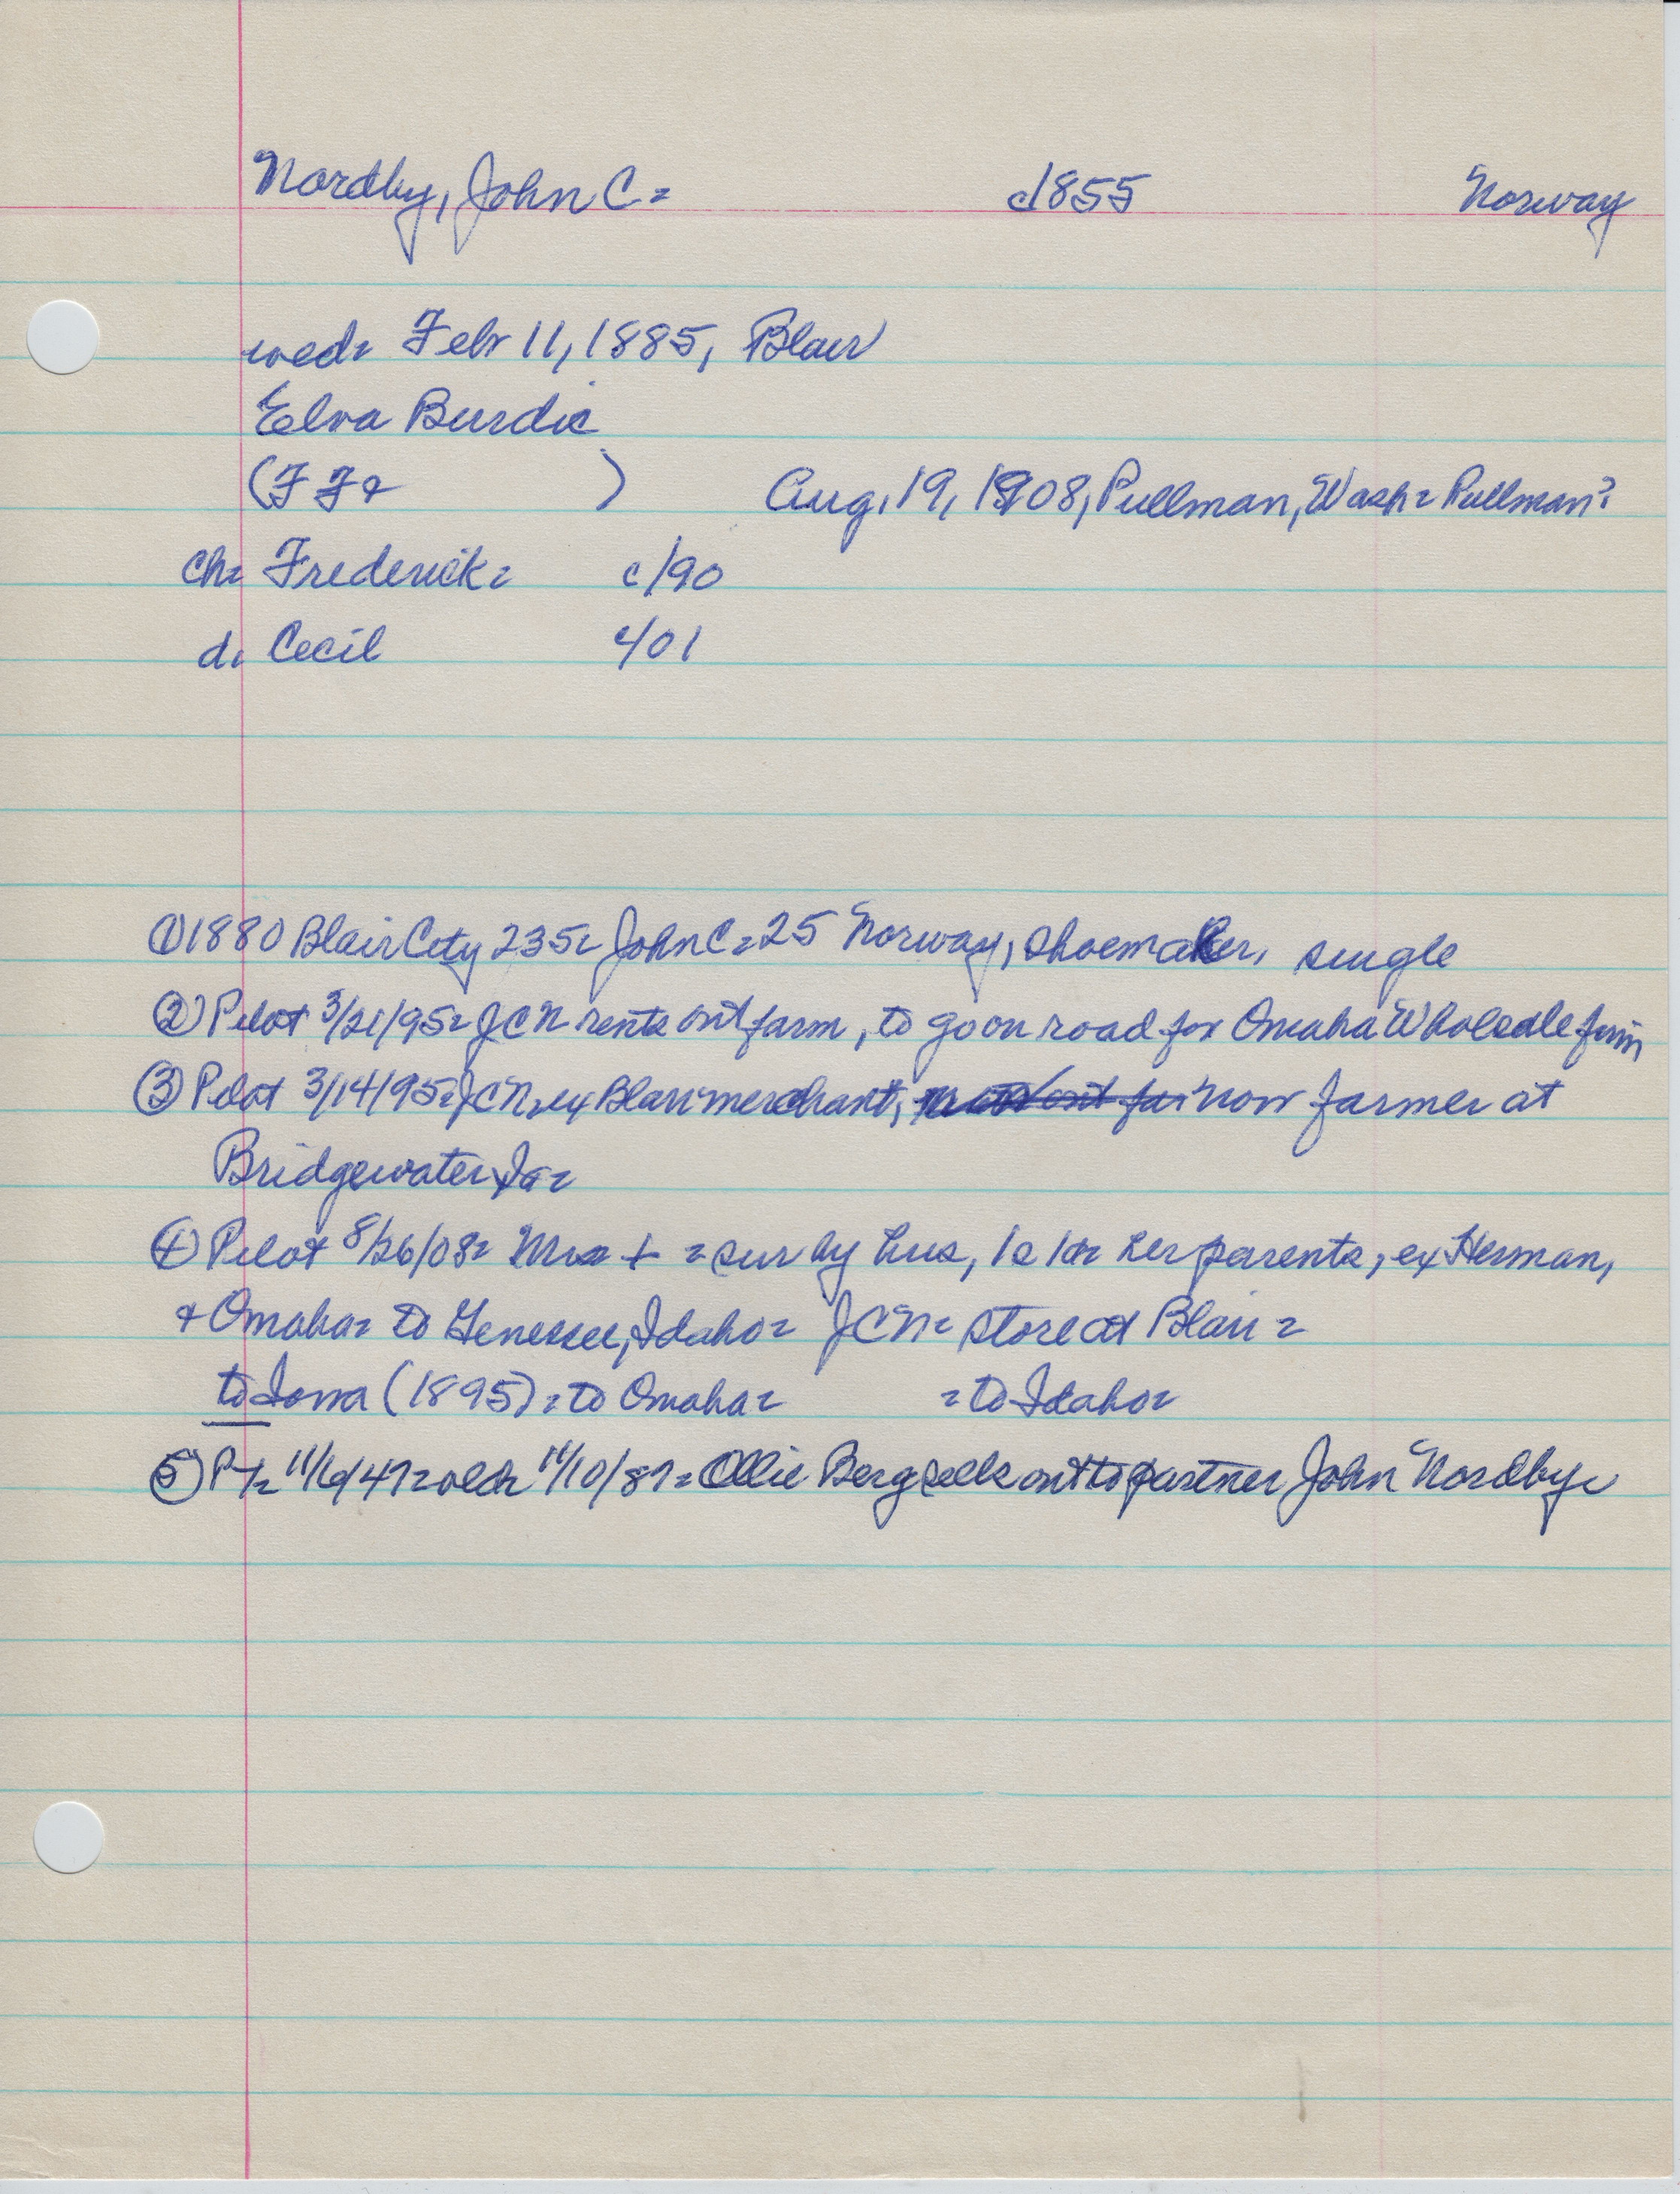 Nordby, John C= c1855 Norway
wed= Feb 11, 1885, Blair
Elva Burdic
(F F & ) Aug. 19, 1908, Pullman, Wash= Pullman?
ch= Frederick= c/90
d. Cecil c/01
① 1880 Blair City 235= John C= 25 Norway, shoemaker, single
② Pilot 3/21/95= JCN rents out farm, to go on road for Omaha Wholesale firm
③ Pilot 3/14/95= JCN= ex Blair merchant, now farmer at
Bridgewater, Ia=
④ Pilot 8/26/08= Mrs + = sur by hus, 1s 1d= her parents, ex Herman,
& Omaha= to Genessee, Idaho= JCN= store at Blair=
to Iowa (1895)= to Omaha= = to Idaho=
⑤ P-T= 11/6/47= old= 11/10/87= Ollie Berg sells out to partner John Nordby=